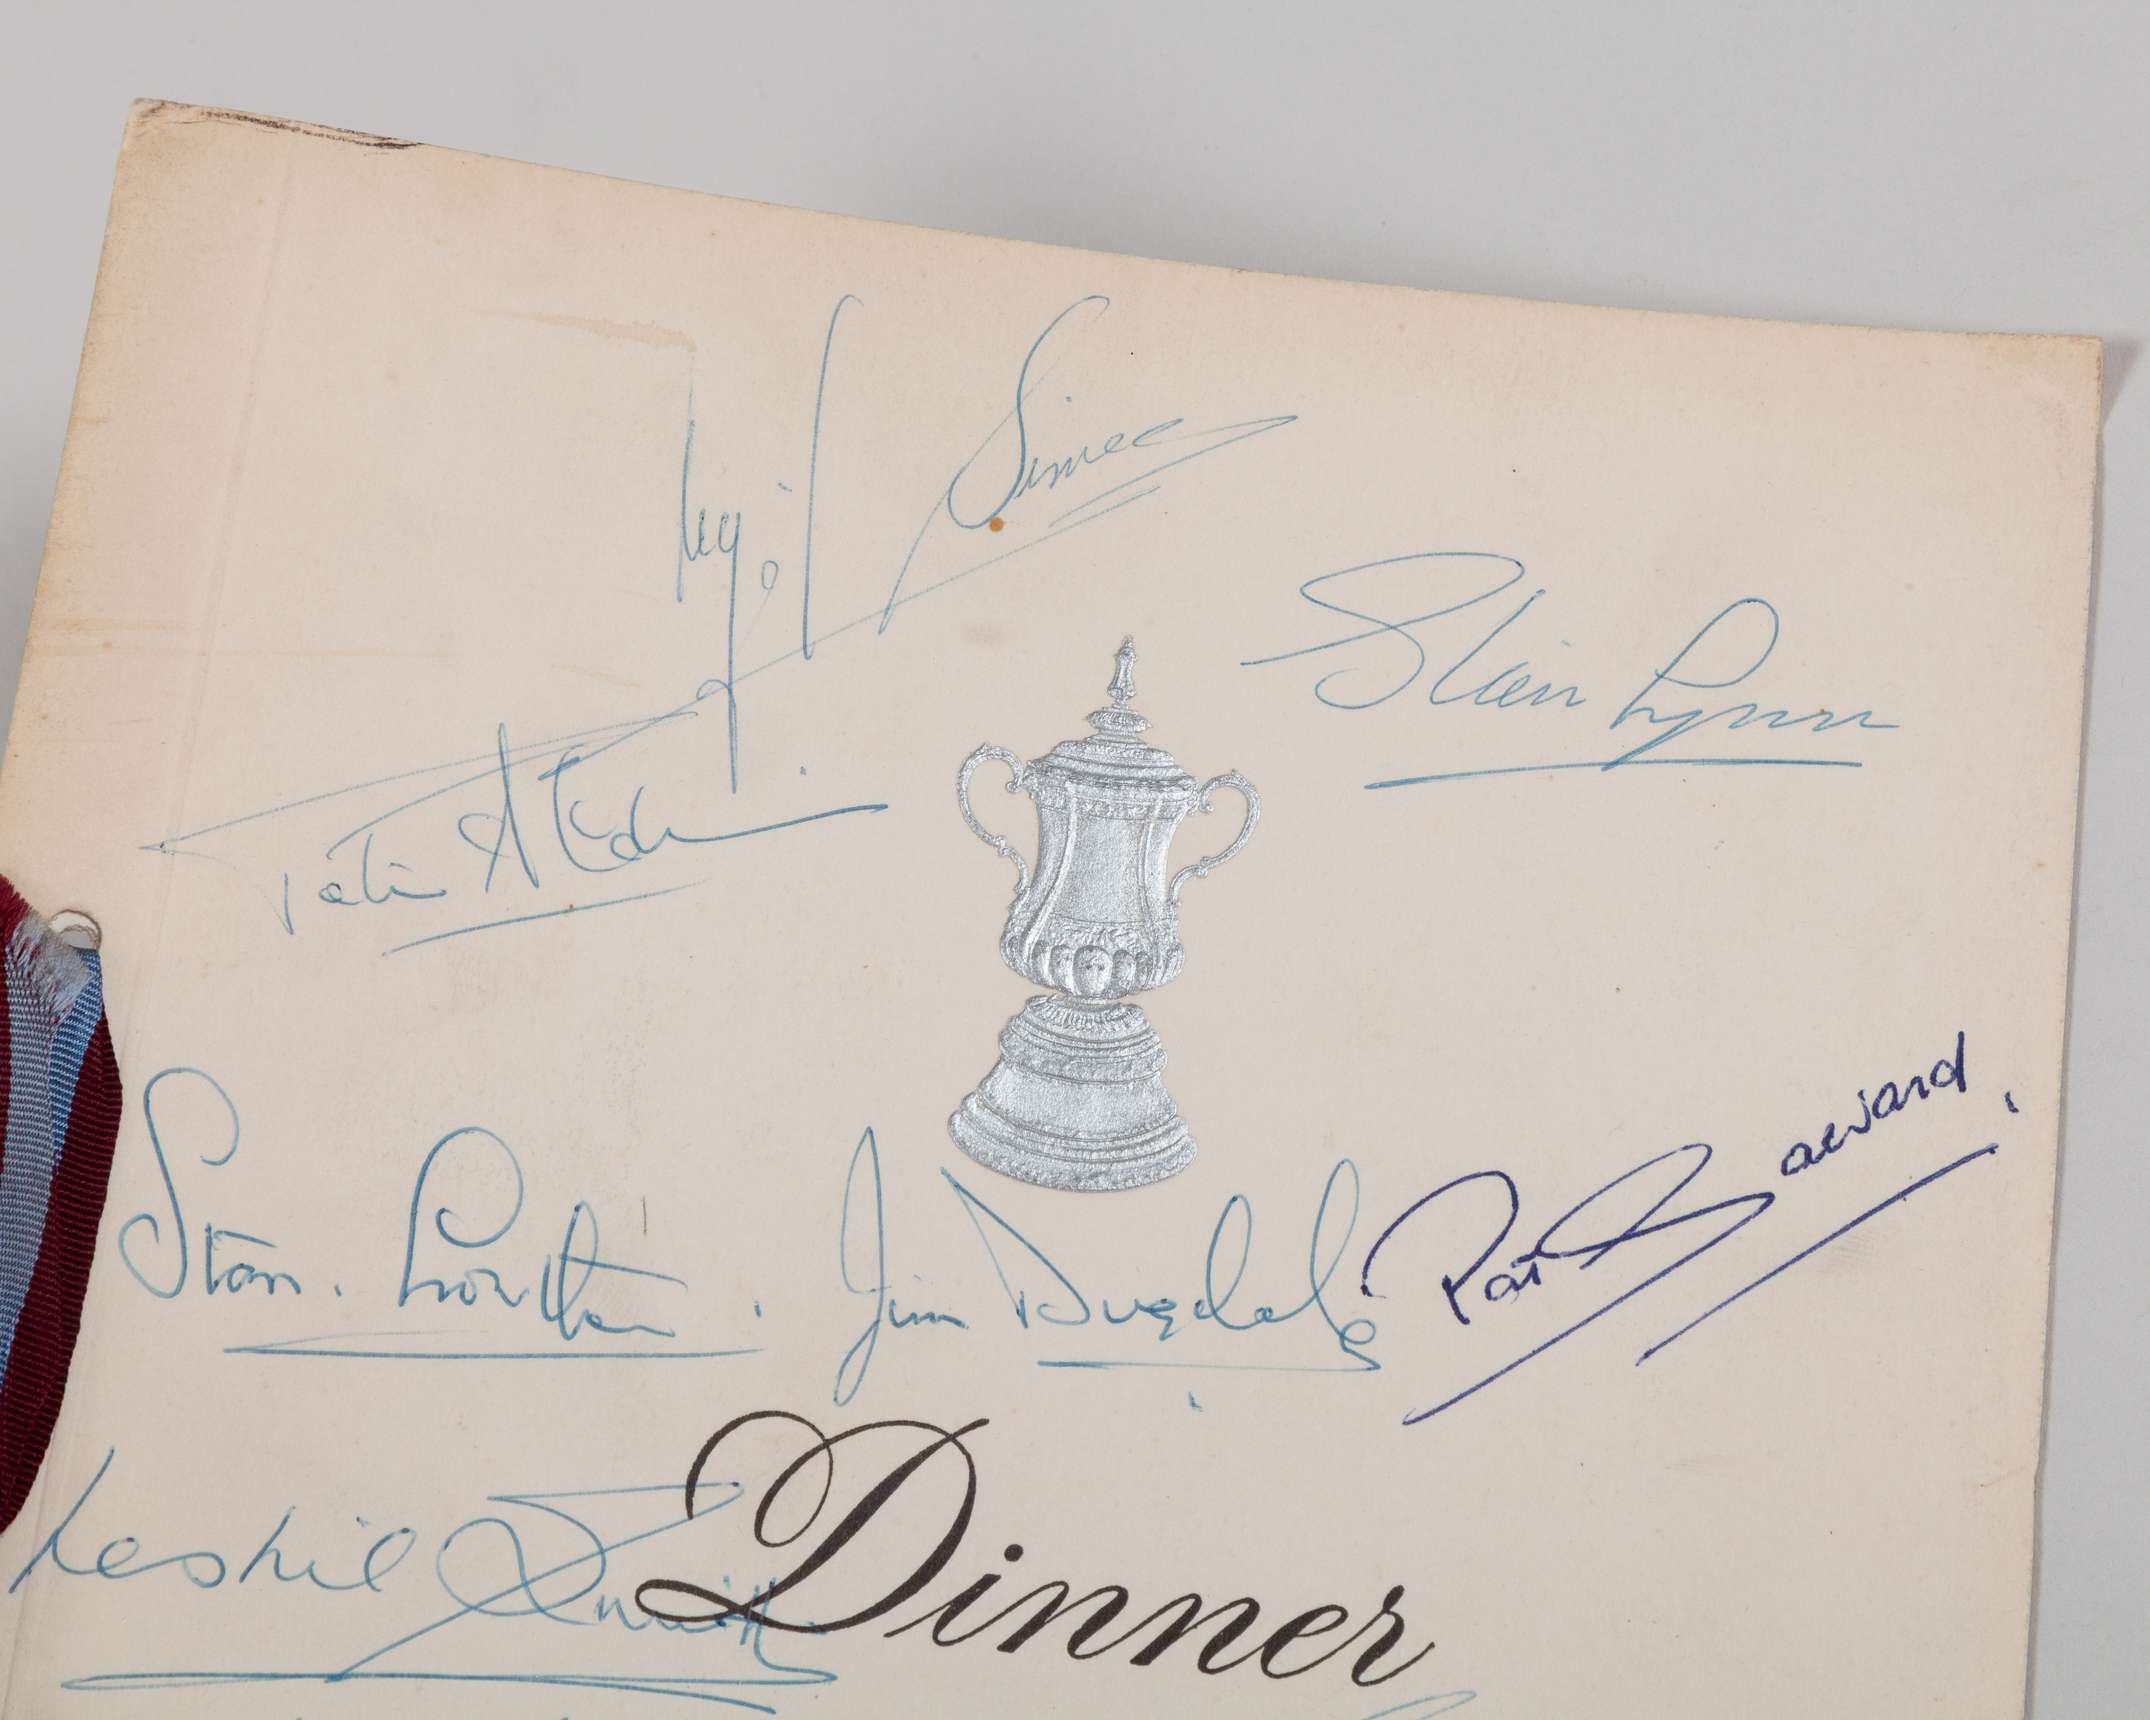 Nigel Sims
Stan Lynn
Peter Aldis
Stan. Crowther.
Jim Dugdale
Pat Saward.
Leslie Smith
Dinner